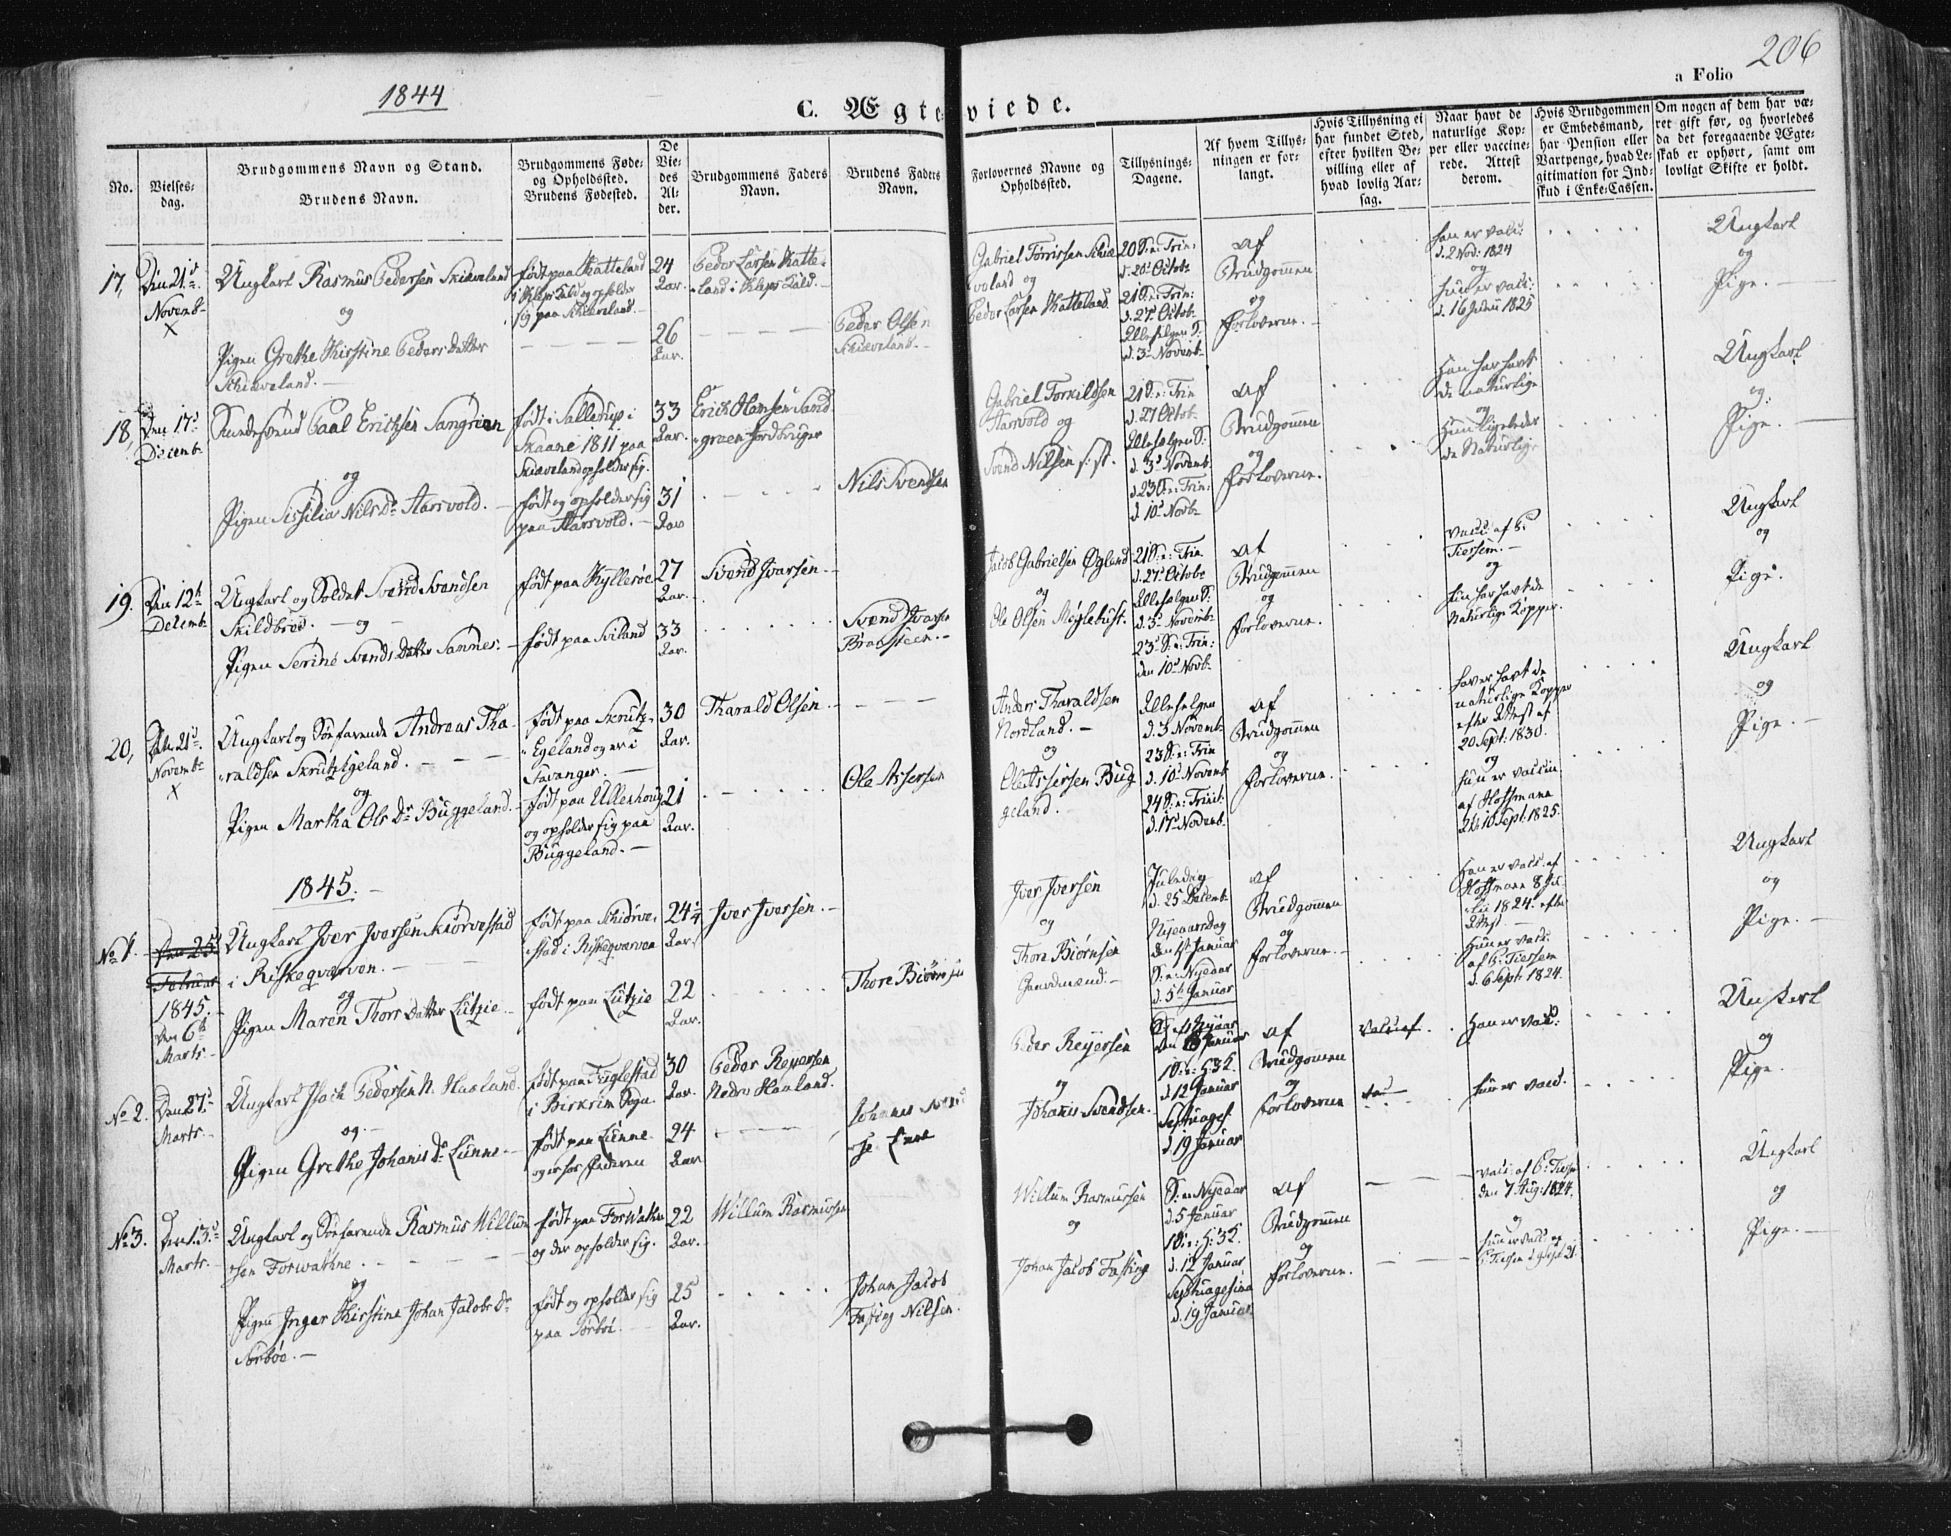 1844
C. Ægteviede.
a Folio 206
No.
Vielses-
dag.
Brudgommens Navn og Stand.
Brudens Navn.
Brudgommens Føde-
og Opholdssted.
Brudens Fødested.
De
Vie-
des
Al-
der.
Brudgommens Faders
Navn.
Brudens Faders
Navn.
Forlovernes Navne og
Opholdssted.
Tillysnings-
Dagene.
Af hvem Tillys-
ningen er for-
langt.
Hvis Tillysning ei
har fundet Sted,
efter hvilken Be-
villing eller af
hvad lovlig Aar-
sag.
Naar havt de
naturlige Kop-
per eller vaccine-
rede. Attest
derom.
Hvis Brudgommen
er Embedsmand,
har Pension eller
Vartpenge, hvad Le-
gitimation for Ind-
skud i Enke-Cassen.
Om nogen af dem har væ-
ret gift før, og hvorledes
da det foregaaende Ægte-
skab er ophørt, samt om
lovligt Skifte er holdt.
17,
Den 21de
Novemb
X
Ungkarl Rasmus Pedersen Skiæveland
og
Pigen Grethe Kirstine Peders Datter
Schiæveland.
født paa Katteland
i Kleps Gield og opholder
sig paa Schiæveland.
24
Aar.
26
Aar.
Peder Larsen Katte-
land i Kleps Gield.
Peder Olsen
Skiæveland.
Gabriel Tørrissen Schiæ
veland og
Peder Larsen Katteland
20 S: e: Trin:
d. 20de Octobr
21 S: e: Trin:
d. 27de Octob.
Allehelgen S:
d. 3de Novemb.
af
Brudgommen
og
Forloverne.
han er vacc:
d. 2 Nov: 1824
og
hun er vacc:
d. 16 Juni 1825
Ungkarl
og
Pige.
18,
Den 17de
Decemb.
Paal Erichsen Sangrien
og
Pigen Sissilia Nils Dr Aarsvold.
født i Sallerup i
Skaane 1811 paa
Skiæveland opholder sig.
født og opholder sig
paa Aarsvold.
33
Aar.
31
Aar
Erich Hansen Sand
green Jordbruger
Nils Svendsen
Gabriel Torkildsen
Aarsvold og
Svend Nilsen s: st.
21 S: e: Trin
d. 27 Octob.
Allehelgen S:
d. 3de Novemb.
23 S: e: Trin:
d. 10de Novb.
af
Brudgommen
og
Forloverne.
Han har havt
de naturlige
og
Hun ligeledes
de Naturlige
Ungkarl
og
Pige.
19.
Den 12te
Decemb.
Ungkarl og Soldat Svend Svendsen
Skildbred. og
Pigen Serine Svends Datter Sannes.
født paa Kyllesøe
født paa Sviland
27
Aar.
33
Aar.
Svend Ivarsen.
Svend Ivarsen
Bradsteen.
Jacob Gabrielsen Øgland
og
Ole Olsen Møglebust.
21 S: e: Trin
d. 27de Octobr
Allehelgen S:
d. 3de Novemb.
23 S: e: Trin:
den 10de Novb.
af
Brudgommen
og
Forloverne.
vacc: af C:
Tiessem.
og
hun har havt de
Naturlige Kopper.
Ungkarl
og
Pige.
20,
Den 21de
Novemb.
X
Ungkarl og Søefarende Andreas Tha-
raldsen Skrutzegeland.
og
Pigen Martha Ols Dr Buggeland.
født paa Skrutz-
Egeland og er i
Stavanger.
født paa Ullenhoug
og opholder sig paa
Buggeland.
30
Aar.
21
Aar.
Tharald Olsen
Ole Assersen
Anders Tharaldsen
Nordland.
og
Ole Assersen Bug
geland.
Allehelgen
d. 3 Novemb.
23 S: e: Trin
d. 10de Novemb
24 S: e: Trinit:
d. 17de Novemb.
af
Brudgommen
og
Forloverne.
haver havt de
naturlige Kopper
efter Attest af
20 Sept: 1830.
og
hun er vaccin
af Hoffmann
10 Sept: 1825.
Ungkarl
og
Pige.
1845.
No 1.
Den 25de
Februar
1845.
Den 6te
Marts
Ungkarl Iver Iversen Skiørvestad
i Riskeqværven.
og
Pigen Maren Thors Datter Lutzie
født paa Schiørve-
stad i Riskeqværven
født paa Lutzie
24 1/4
Aar.
22
Aar.
Iver Iversen.
Thore Biørnsen
Iver Iversen
og
Thore Biørnsen
Gaardmænd.
Juledag
d. 25 Decemb.
Nyeaarsdag
den 1ste Januar
S: e: Nyeaar
d. 5te Januar
af
Brudgommen
og
Forloverne.
Han er vacc: af
Hoffmann 8 Ju-
lii 1824. efter
Attest.
Hun er vacc:
af C: Tiessem
d. 6 Sept: 1824.
Ungkarl
og
Pige.
No 2.
Den 27de
Marts
Ungkarl Isach Pedersen N. Haaland.
og
Pigen Grethe Johanis Dr Lunne
født paa Fuglestad
i Birkrim Sogn.
født paa Lunne
30
Aar.
24
Aar.
Peder Reyersen
Nedre Haaland.
Johannes
Peder Reyersen
og
Johanis Svendsen.
10: e: H: 3 K.
d. 12 Januar
Septuages.
d. 19 Januar
af
Brudgommen
og
Forloverne
Han er vacc:
hun er vacc.
Ungkarl
og
Pige.
No 3.
Den 13de
Marts
Ungkarl og Søefarende Rasmus Willum
sen Forwathne.
og
Pigen Inger Kirstine Johan Jacobs Dr
Sørbøe.
født paa Forwathne
og der opholder sig.
født og opholder sig
paa Sørbøe.
22
Aar.
25
Aar.
Willum Rasmussen
Johan Jacob
Fasting Nilsen.
Willum Rasmussen
og
Johan Jacob Fasting
S: e: Nyeaar
d. 5 Januar
10: e: H: 3 K.
d. 12 Januar
Septuagesima
d. 19 Januar
af
Brudgommen
og
Forloverne.
vacc: af C: Tiessem
den 7 Aug: 1824.
og
hun er vacc: af
C: Tiessem
Ungkarl
og
Pige.